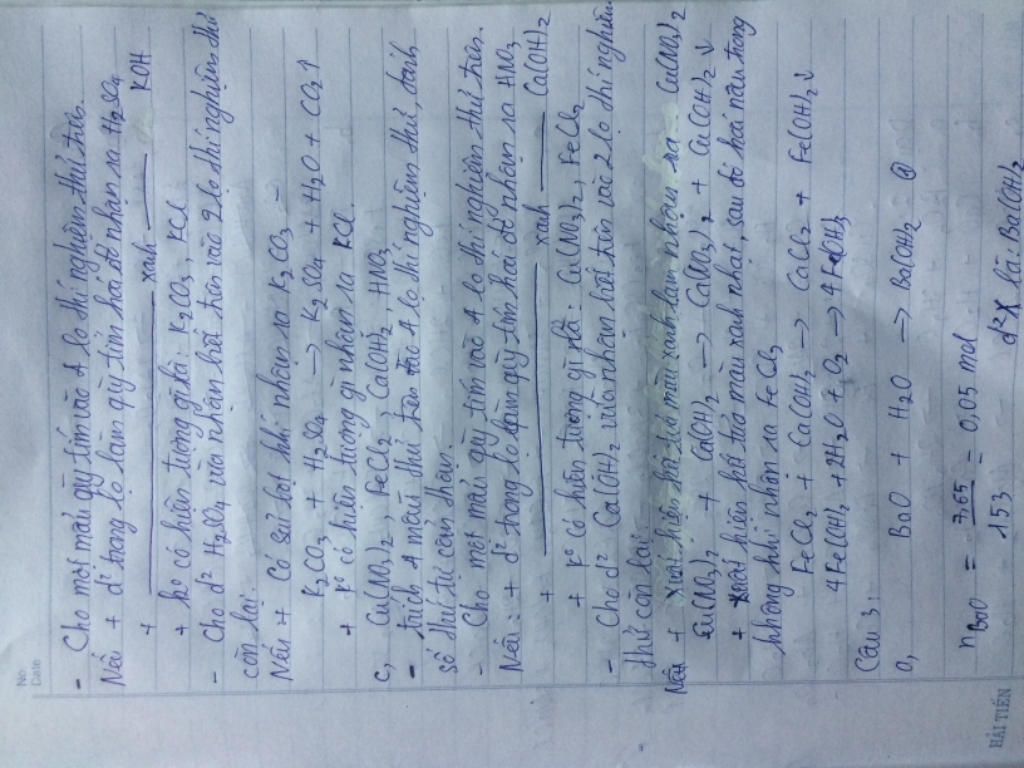 No.
Date
- Cho một mẩu quỳ tím vào 4 lọ thí nghiệm thử trên.
Nếu + d² trong lọ làm quỳ tím hoá đỏ nhận ra H₂SO₄
+ ——— xanh ——— KOH
+ ko có hiện tượng gì là: K₂CO₃, KCl
- Cho d² H₂SO₄ vừa nhận biết trên vào 2 lọ thí nghiệm thử
còn lại.
Nếu + Có sủi bọt khí nhận ra K₂CO₃
K₂CO₃ + H₂SO₄ → K₂SO₄ + H₂O + CO₂↑
+ ko có hiện tượng gì nhận ra KCl.
c, Cu(NO₃)₂, FeCl₂, Ca(OH)₂, HNO₃
- trích 4 mẫu thử ra 4 lọ thí nghiệm thử, đánh
số thứ tự cẩn thận.
- Cho một mẩu quỳ tím vào 4 lọ thí nghiệm thử trên.
Nếu: + d² trong lọ làm quỳ tím hoá đỏ nhận ra HNO₃
+ ——— xanh ——— Ca(OH)₂
+ ko có hiện tượng gì là: Cu(NO₃)₂, FeCl₂
- Cho d² Ca(OH)₂ vừa nhận biết trên vào 2 lọ thí nghiệm
thử còn lại:
Nếu + Xuất hiện kết tủa màu xanh lam nhận ra Cu(NO₃)₂
Cu(NO₃)₂ + Ca(OH)₂ → Ca(NO₃)₂ + Cu(OH)₂↓
+ xuất hiện kết tủa màu xanh nhạt, sau đó hoá nâu trong
không khí nhận ra FeCl₂
FeCl₂ + Ca(OH)₂ → CaCl₂ + Fe(OH)₂↓
4Fe(OH)₂ + 2H₂O + O₂ → 4Fe(OH)₃
Câu 3:
a, BaO + H₂O → Ba(OH)₂ @
n BaO = 7,65 / 153 = 0,05 mol
d² X là: Ba(OH)₂
HẢI TIẾN